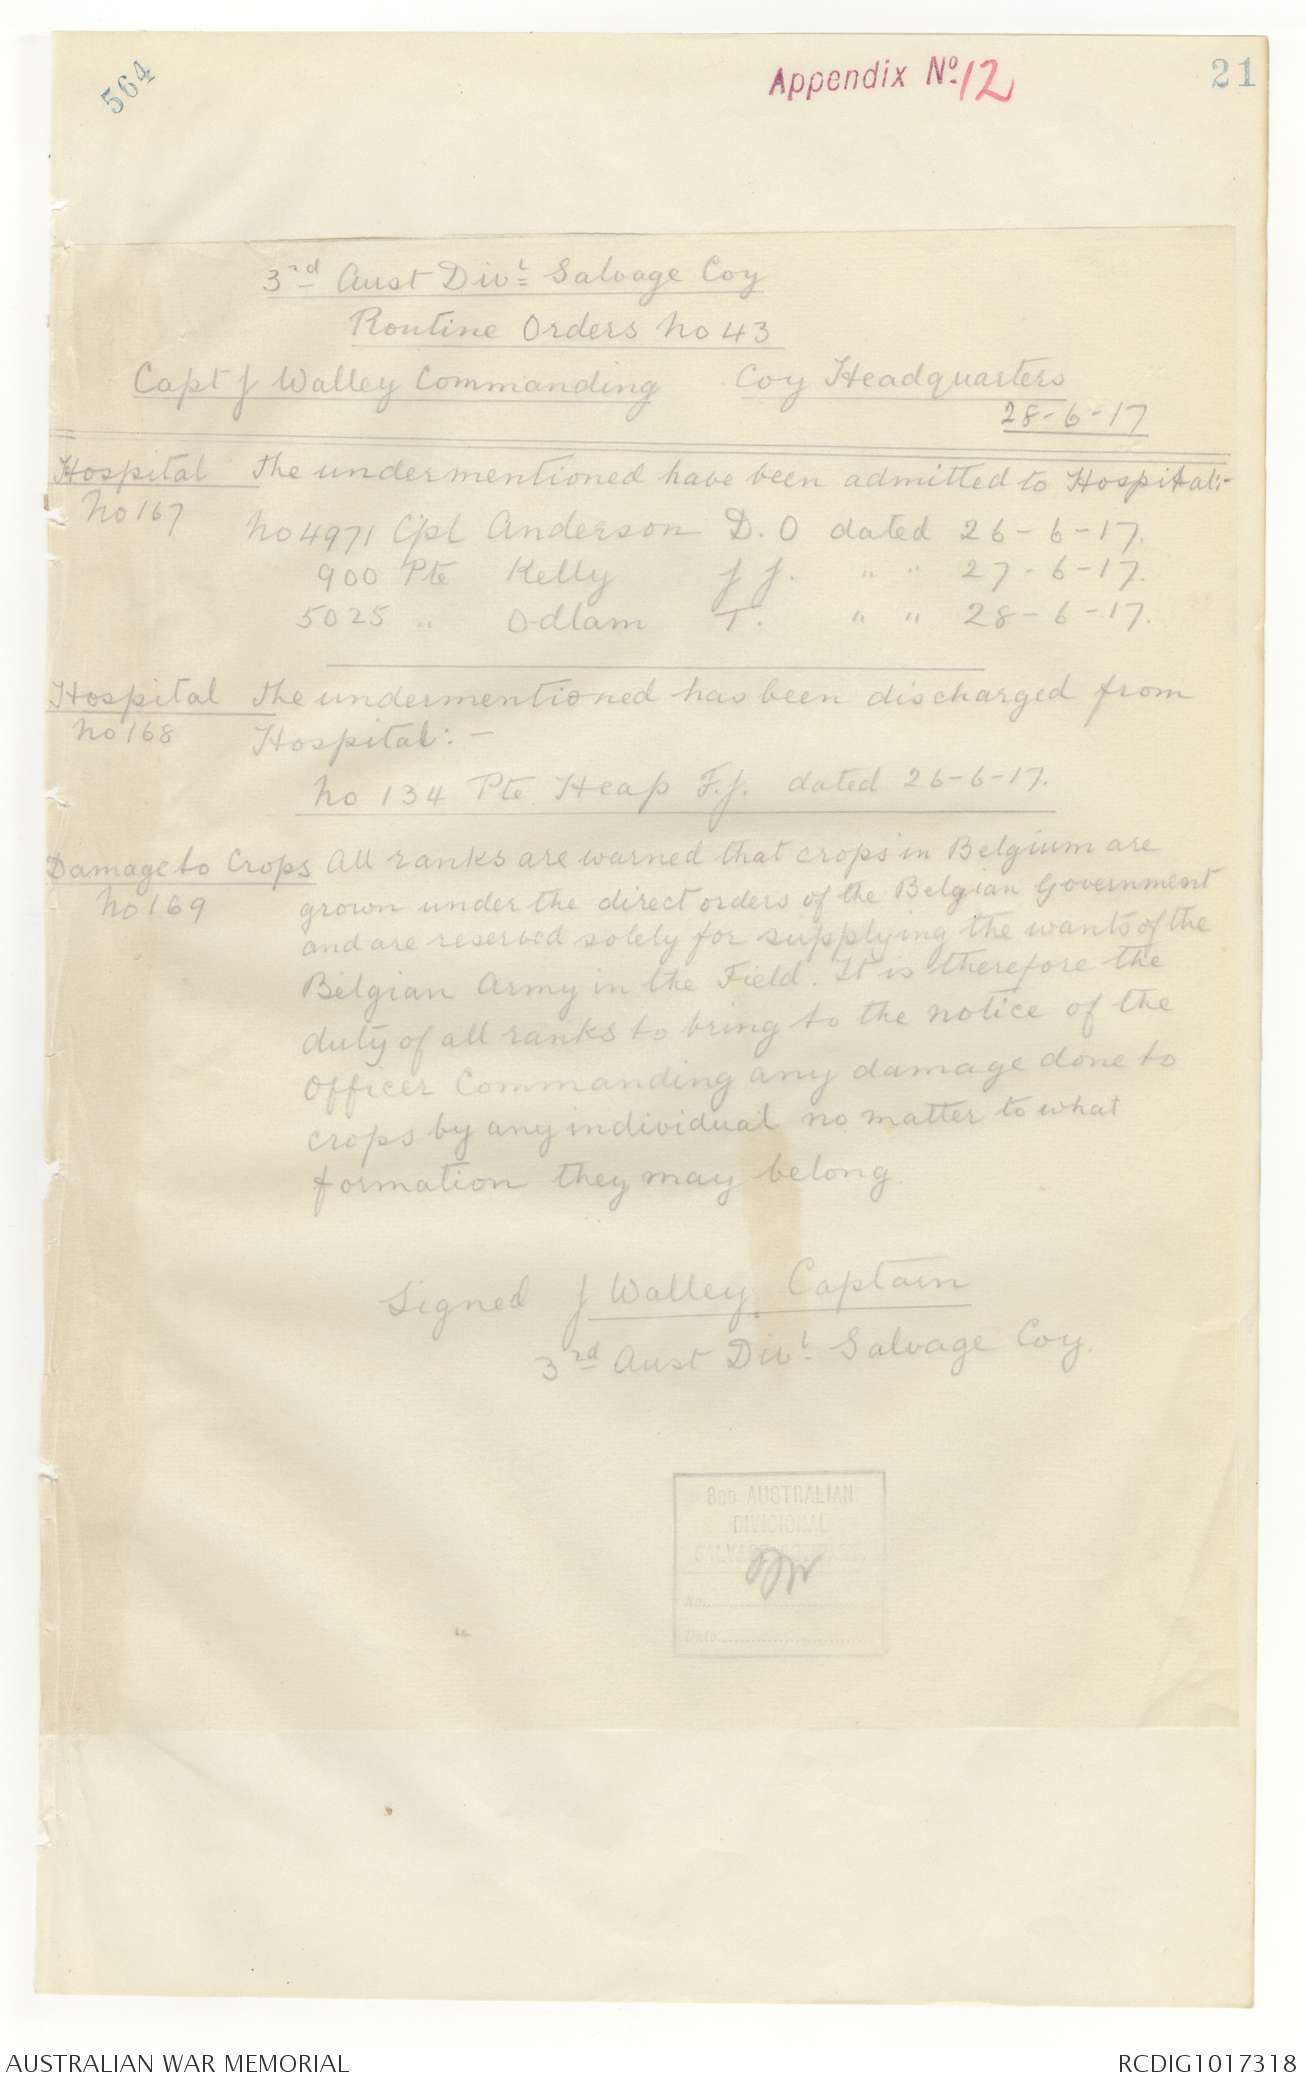 564
Appendix No. 12
21
3rd Aust Divl Salvage Coy
Routine Orders No 43
Capt J Walley Commanding Coy Headquarters
28-6-17
Hospital The undermentioned have been admitted to Hospital:-
No 167
No 4971 Cpl Anderson D.O dated 26-6-17.
900 Pte Kelly J J. " " 27-6-17.
5025 " Odlam T. " " 28-6-17.
Hospital The undermentioned has been discharged from
No 168 Hospital:-
No 134 Pte Heap F.J. dated 26-6-17.
Damage to Crops All ranks are warned that crops in Belgium are
No 169 grown under the direct orders of the Belgian Government
and are reserved solely for supplying the wants of the
Belgian Army in the Field. It is therefore the
duty of all ranks to bring to the notice of the
Officer Commanding any damage done to
crops by any individual no matter to what
formation they may belong
Signed J Walley Captain
3rd Aust Divl Salvage Coy.
3RD AUSTRALIAN
DIVISIONAL
SALVAGE
No.
Date
AUSTRALIAN WAR MEMORIAL
RCDIG1017318